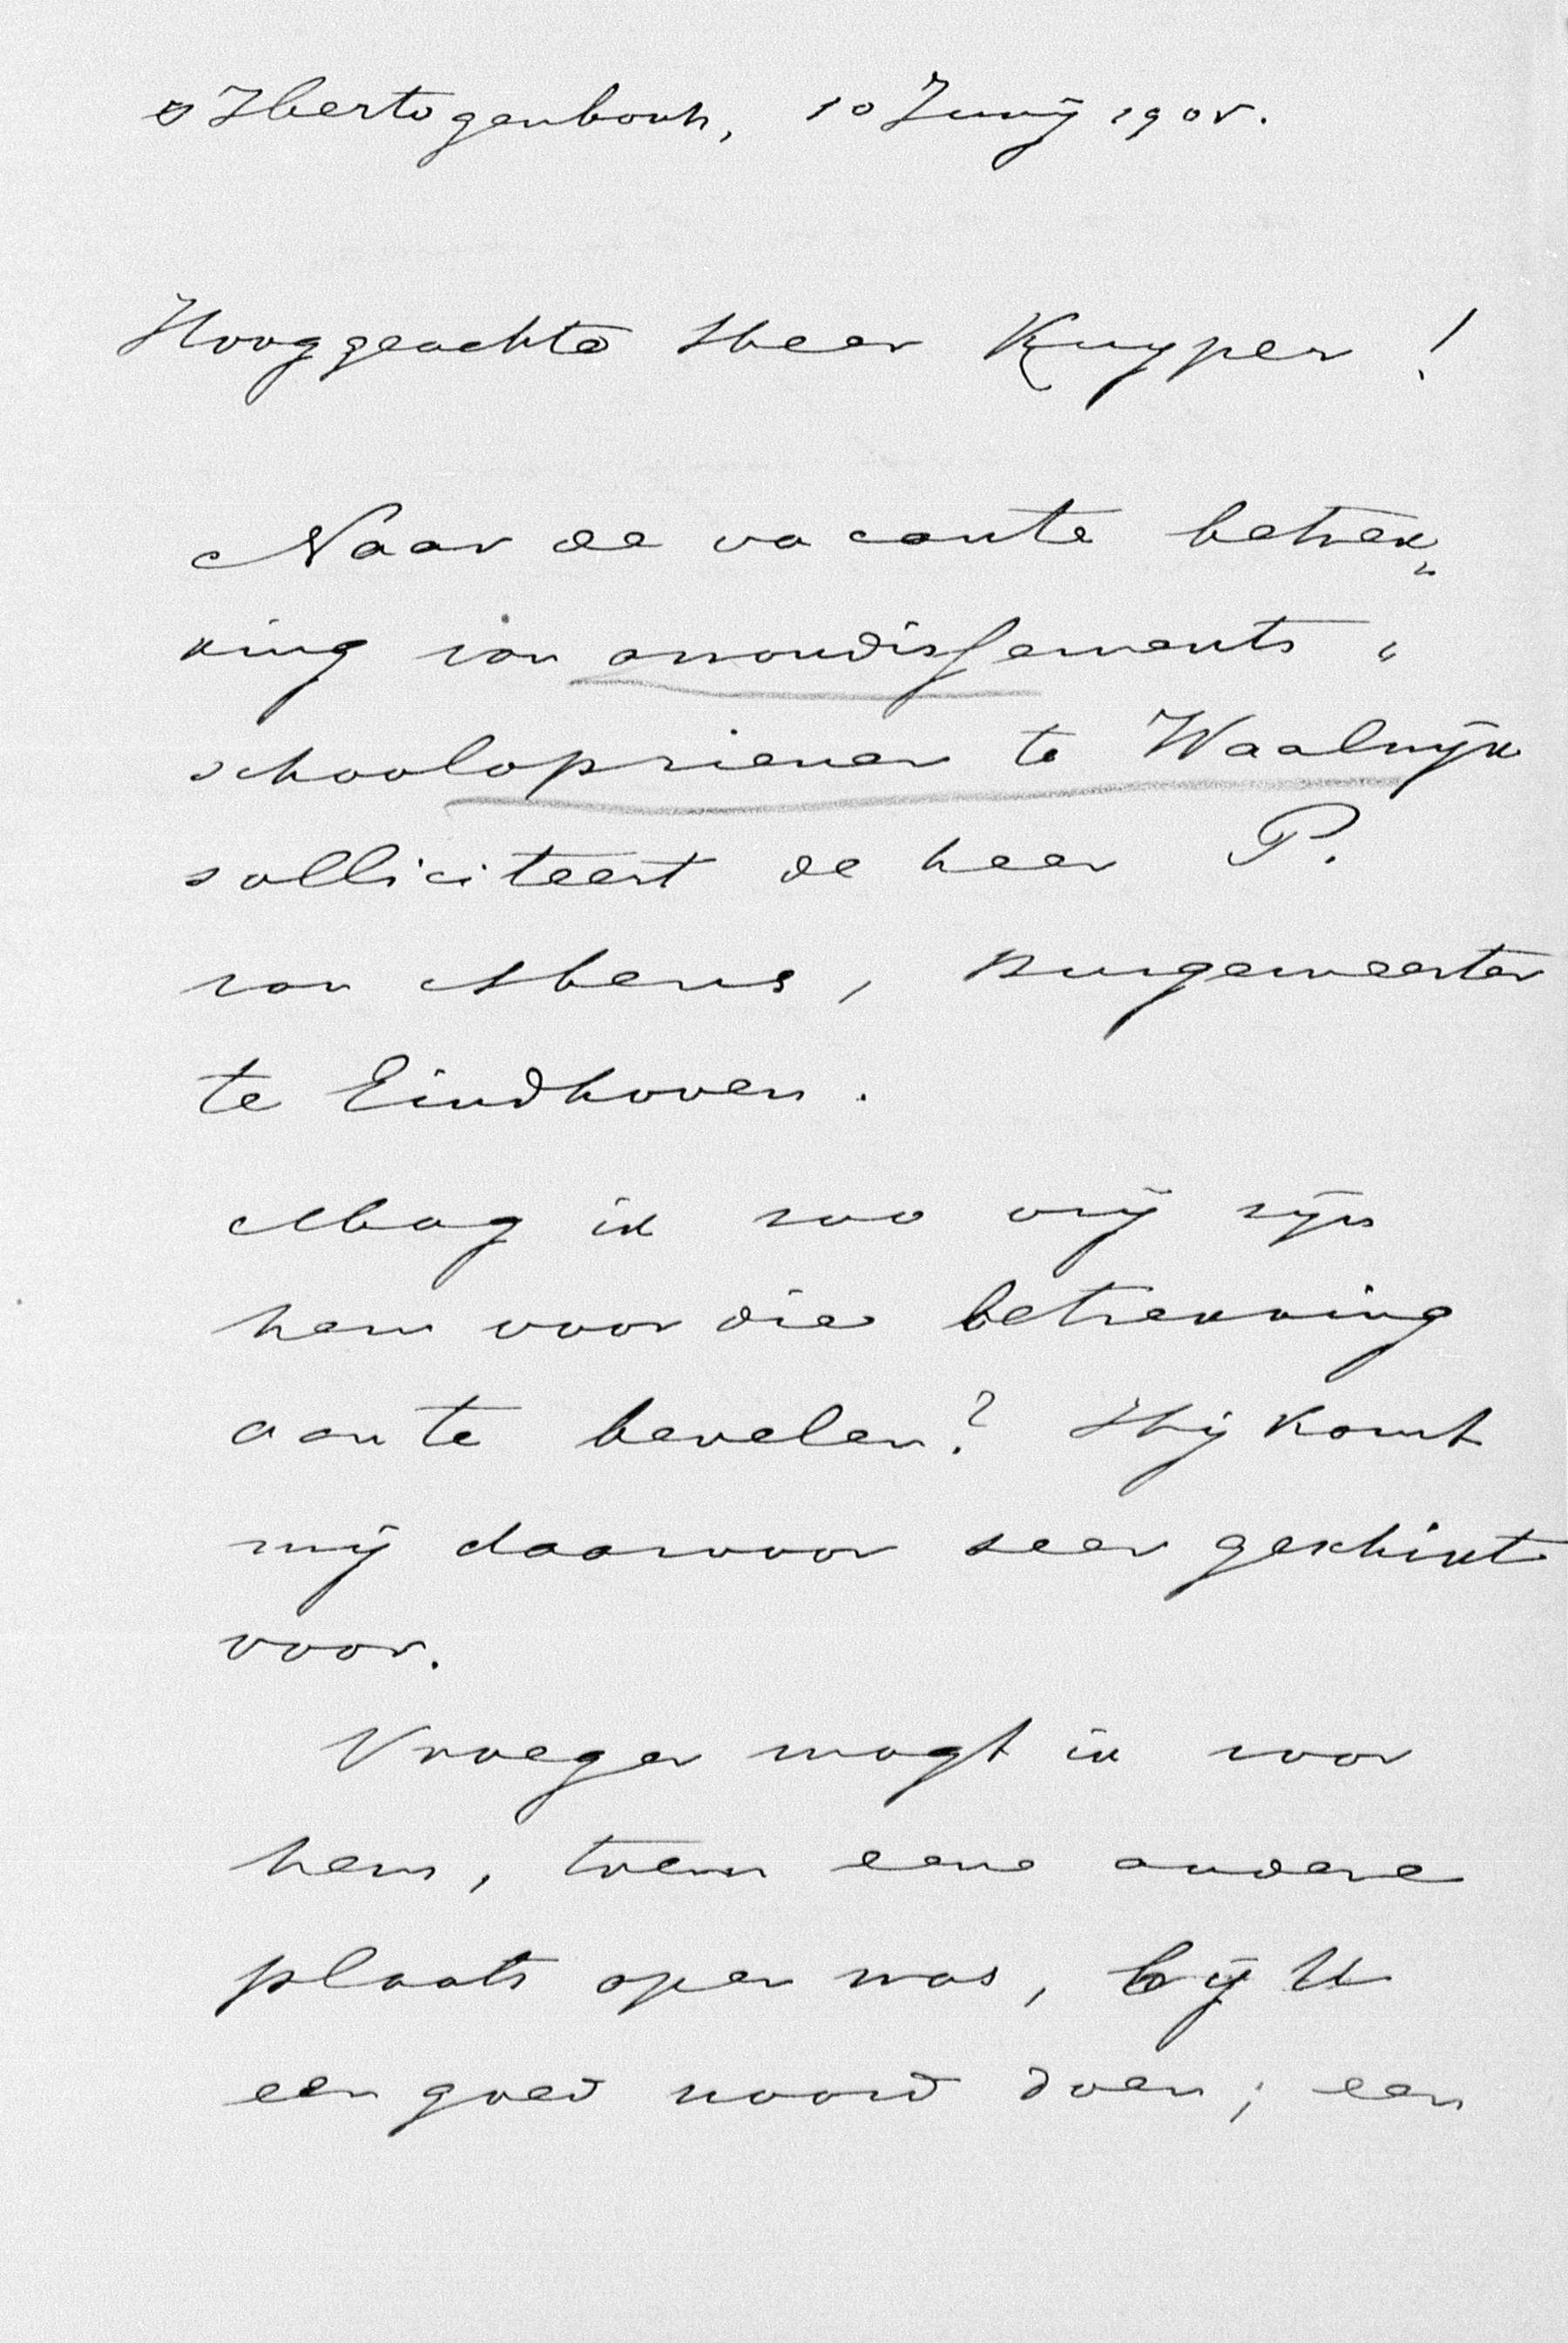 's Hertogenbosch, 10 Junij 1905.
Hooggeachte Heer Kuyper!
Naar de vacante betrek„
king van arrondissements „
schoolopziener te Waalwijk
solliciteert de heer P.
van Mens, Burgemeester
te Eindhoven.
Mag ik zoo vrij zijn
hem voor die betrekking
aan te bevelen? Hij komt
mij daarvoor zeer geschikt
voor.
Vroeger mogt ik voor
hem, toen eene andere
plaats open was, bij U
een goed woord doen; een